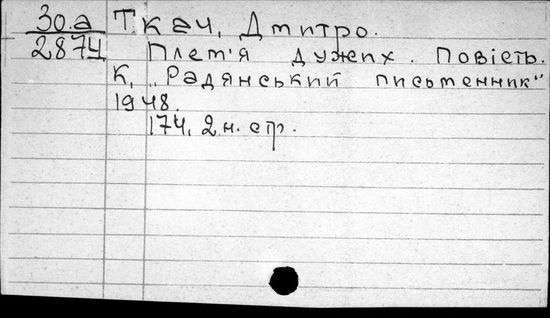 30.а Ткач, Дмитро.
2874 Плем'я дужих. Повість.
К, „Радянський письменник"
1948.
174, 2 н. стр.